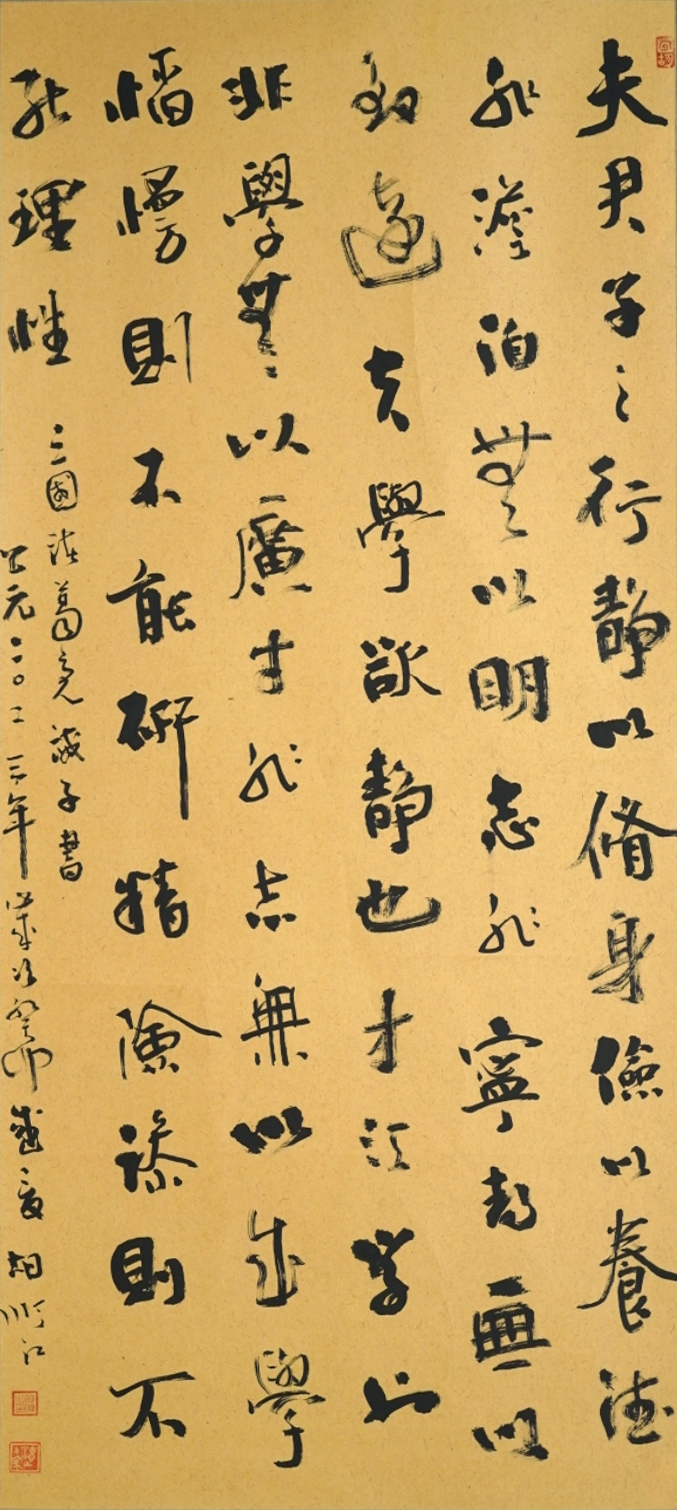 夫君子之行静以脩身儉以養德
非澹泊無以明志非寧静無以
致遠夫學欲静也才須學也
非學無以廣才非志無以成學
慆慢則不能研精險躁則不
能理性
三國諸葛亮誡子書
公元二〇二三年歲次癸卯盛夏胡江